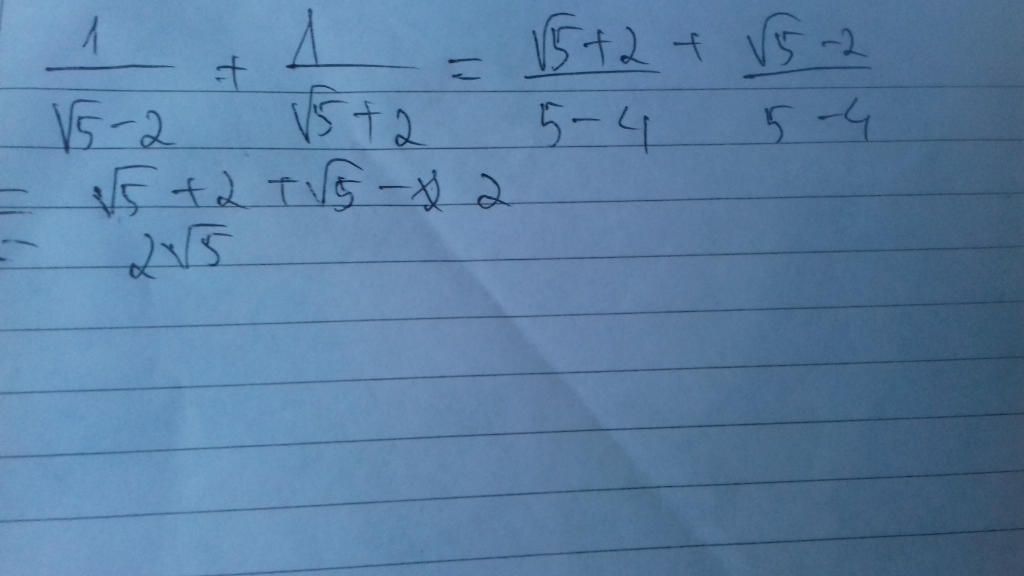 1/(√5-2) + 1/(√5+2) = (√5+2)/(5-4) + (√5-2)/(5-4)
= √5 +2 +√5 - 2
= 2√5